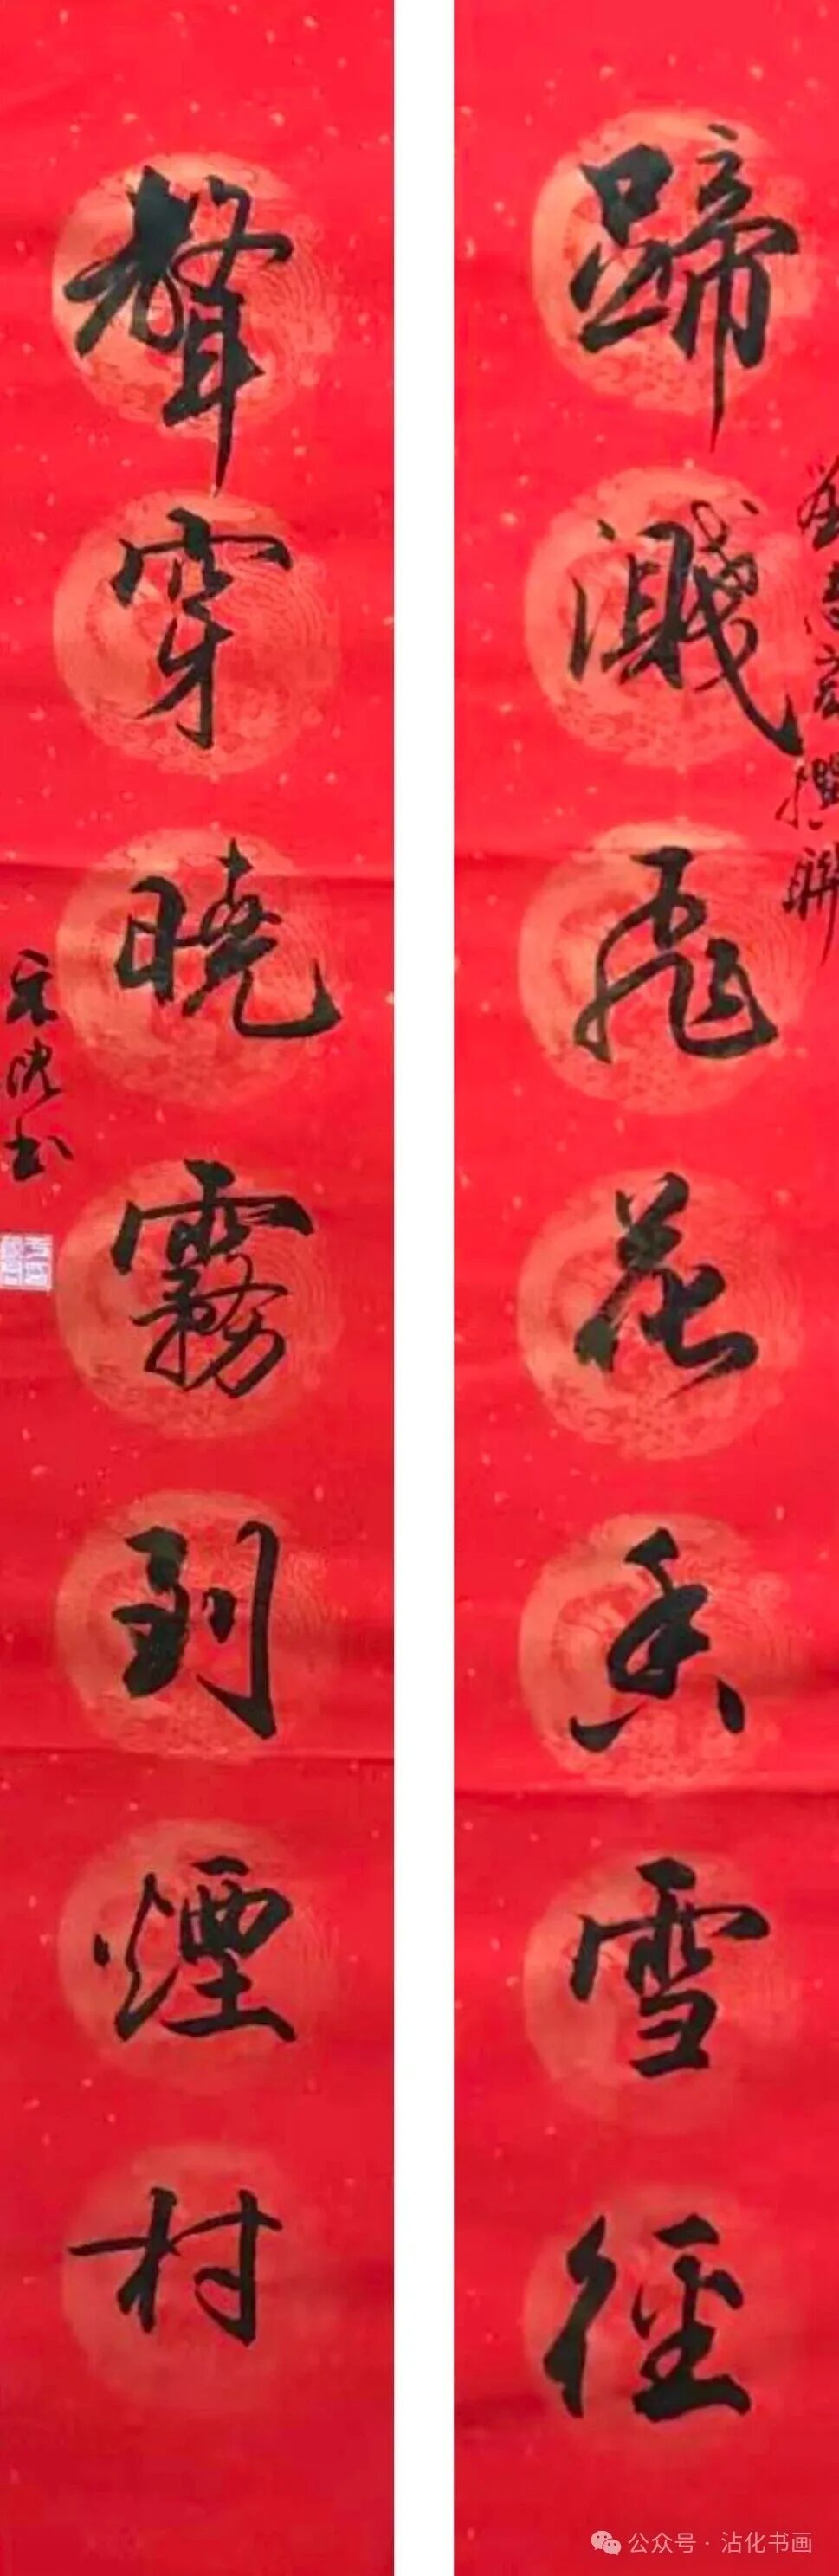 蹄濺飛花香雪徑
撰聯
聲穿曉霧到煙村
书
公众号·沾化书画